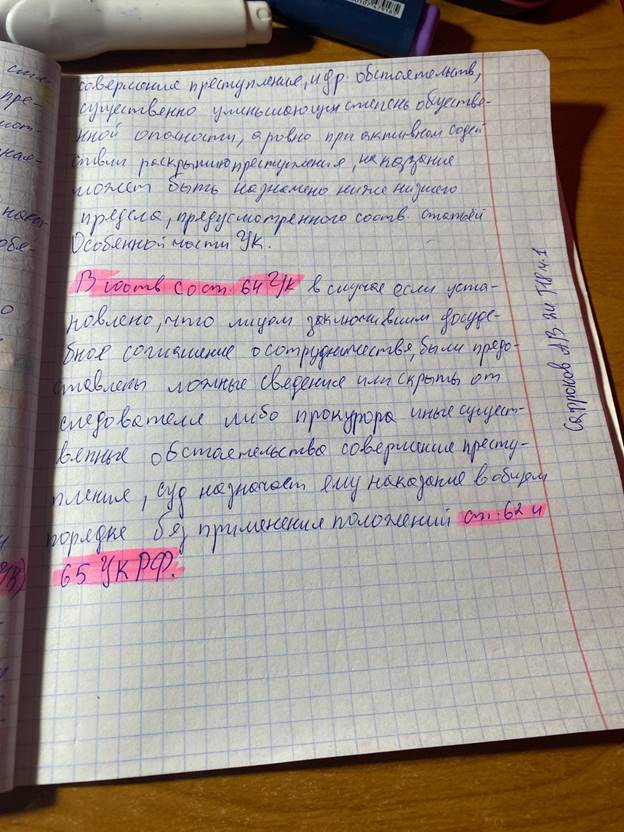 совершение преступления, и др. обстоятельств,
существенно уменьшающих степень обществе-
нной опасности, а ровно при активном содей
ствии раскрытию преступления, наказание
может быть назначено ниже низшего
предела, предусмотренного соотв. статьёй
Особенной части УК.
В соотв со ст. 64 УК в случае если уста-
новлено, что лицом заключившим досуде-
бное соглашение о сотрудничестве, были предо-
ставлены ложные сведение или скрыты от
следователя либо прокурора иные сущест-
венные обстоятельства совершение престу-
пления, суд назначает ему наказание в общем
порядке без применения положений ст. 62 и
65 УК РФ.